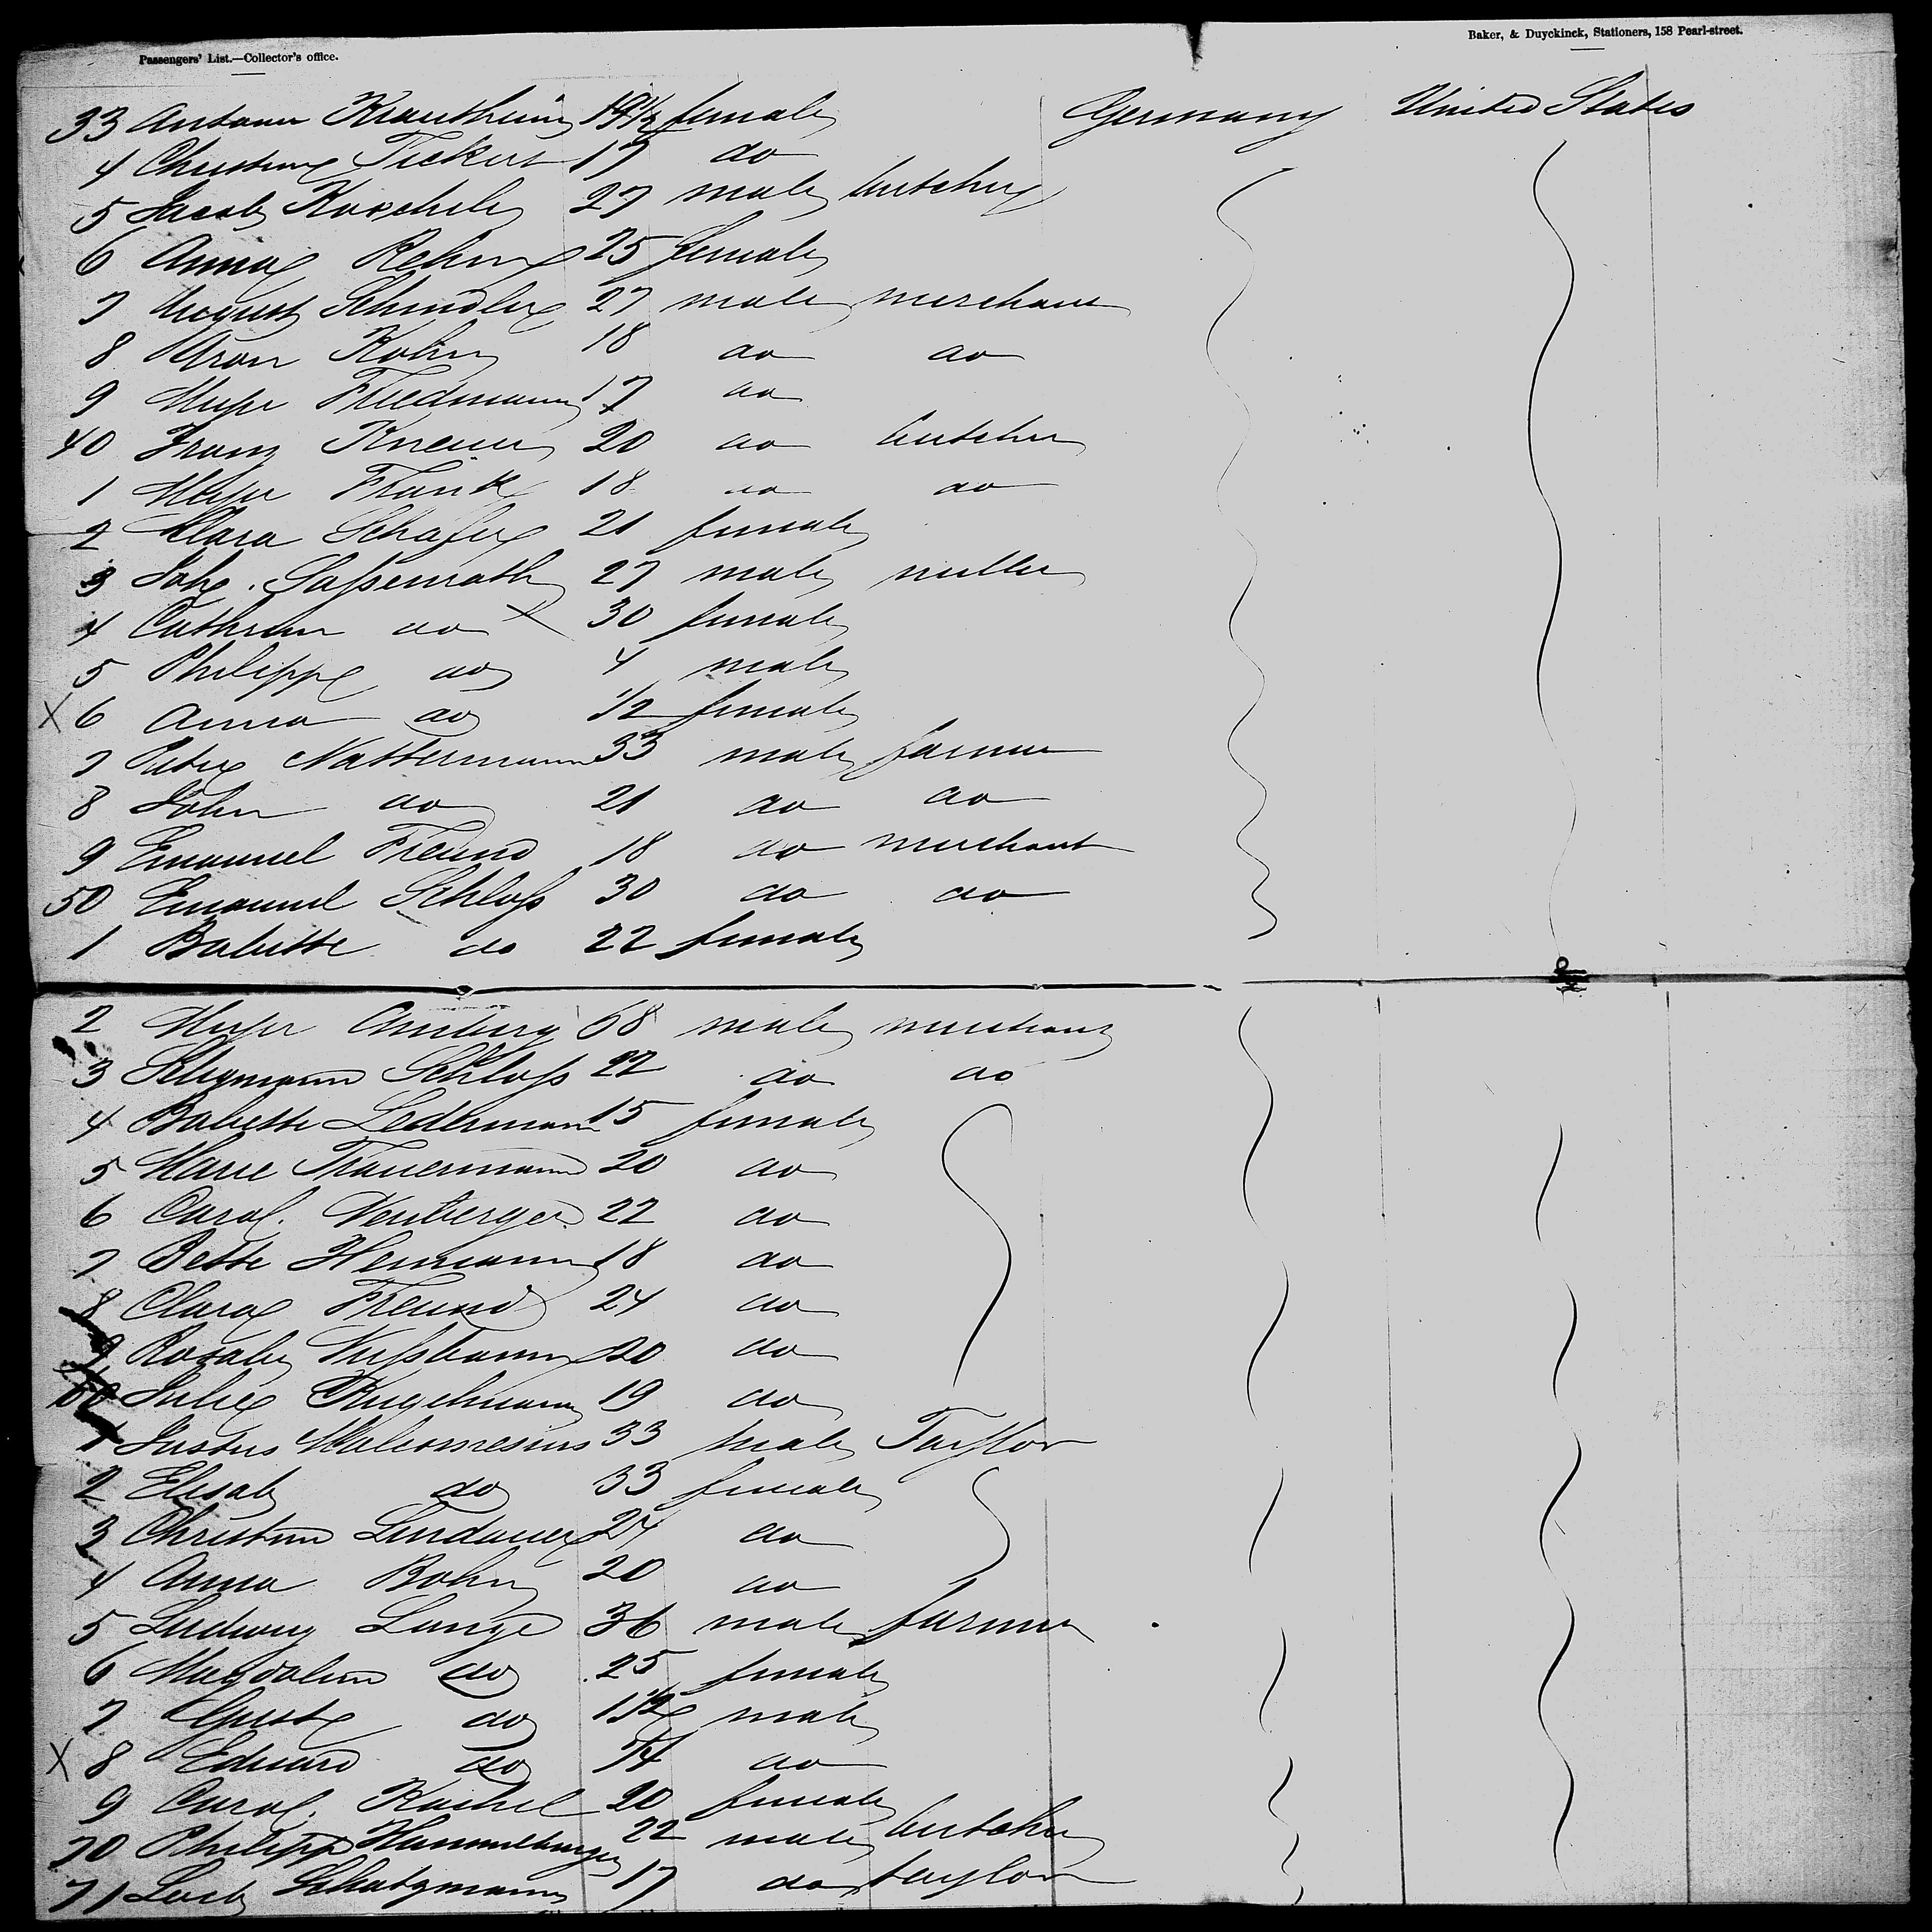 Passengers' List.—Collector's office.
Baker, & Duyckinck, Stationers, 158 Pearl-street.
33 female Germany United States
4 Christine 17 do
5 Jacob 27 male butcher
6 Anna Rehm 25 female
7 August Schindler 27 male merchant
8 Aron Kohn 18 do do
9 Meyer Friedmann 17 do
40 Franz 20 do butcher
1 Meyer Frank 18 do do
2 Klara Schafer 21 female
3 Joh. Saßenrath 27 male miller
4 do 30 female
5 Philipp do 4 male
X 6 Anna do 1/2 female
7 Peter Nattermann 33 male farmer
8 John do 21 do do
9 Emanuel Freund 18 do merchant
50 Emanuel Schloß 30 do do
1 Babette do 22 female
2 Meyer 68 male merchant
3 Schloß 22 do do
4 Babette Ledermann 15 female
5 Marie Trauermann 20 do
6 Carol. 22 do
7 Bette 18 do
8 Clara Freund 24 do
9 Rosalie Nußbaum 20 do
60 Julie Kugelmann 19 do
1 Justus Malcomesius 33 male Taylor
2 Elisab do 33 female
3 Christine Lindauer 24 do
4 Anna Bohn 20 do
5 Ludwig Lange 36 male farmer
6 Magdalena do 25 female
7 do male
X 8 Eduard do do
9 Carol. 20 female
70 Philipp Hammelburger 22 male butcher
71 Schatzmann 17 do taylor